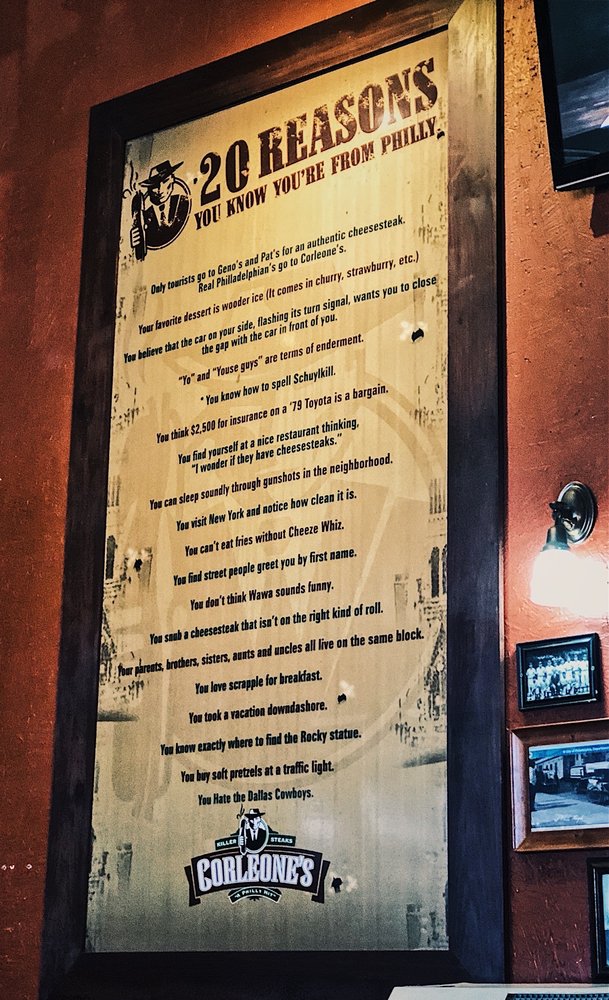 20 REASONS
YOU KNOW YOU'RE FROM PHILLY.
Only tourists go to Geno's and Pat's for an authentic cheesesteak.
Real Philladelphian's go to Corleone's.
Your favorite dessert is wooder ice (It comes in churry, strawburry, etc.)
You believe that the car on your side, flashing its turn signal, wants you to close
the gap with the car in front of you.
"Yo" and "Youse guys" are terms of enderment.
You know how to spell Schuylkill.
You think $2,500 for insurance on a '79 Toyota is a bargain.
You find yourself at a nice restaurant thinking,
"I wonder if they have cheesesteaks."
You can sleep soundly through gunshots in the neighborhood.
You visit New York and notice how clean it is.
You can't eat fries without Cheeze Whiz.
You find street people greet you by first name.
You don't think Wawa sounds funny.
You snub a cheesesteak that isn't on the right kind of roll.
Your parents, brothers, sisters, aunts and uncles all live on the same block.
You love scrapple for breakfast.
You took a vacation downdashore.
You know exactly where to find the Rocky statue.
You buy soft pretzels at a traffic light.
You Hate the Dallas Cowboys.
KILLER STEAKS
CORLEONE'S